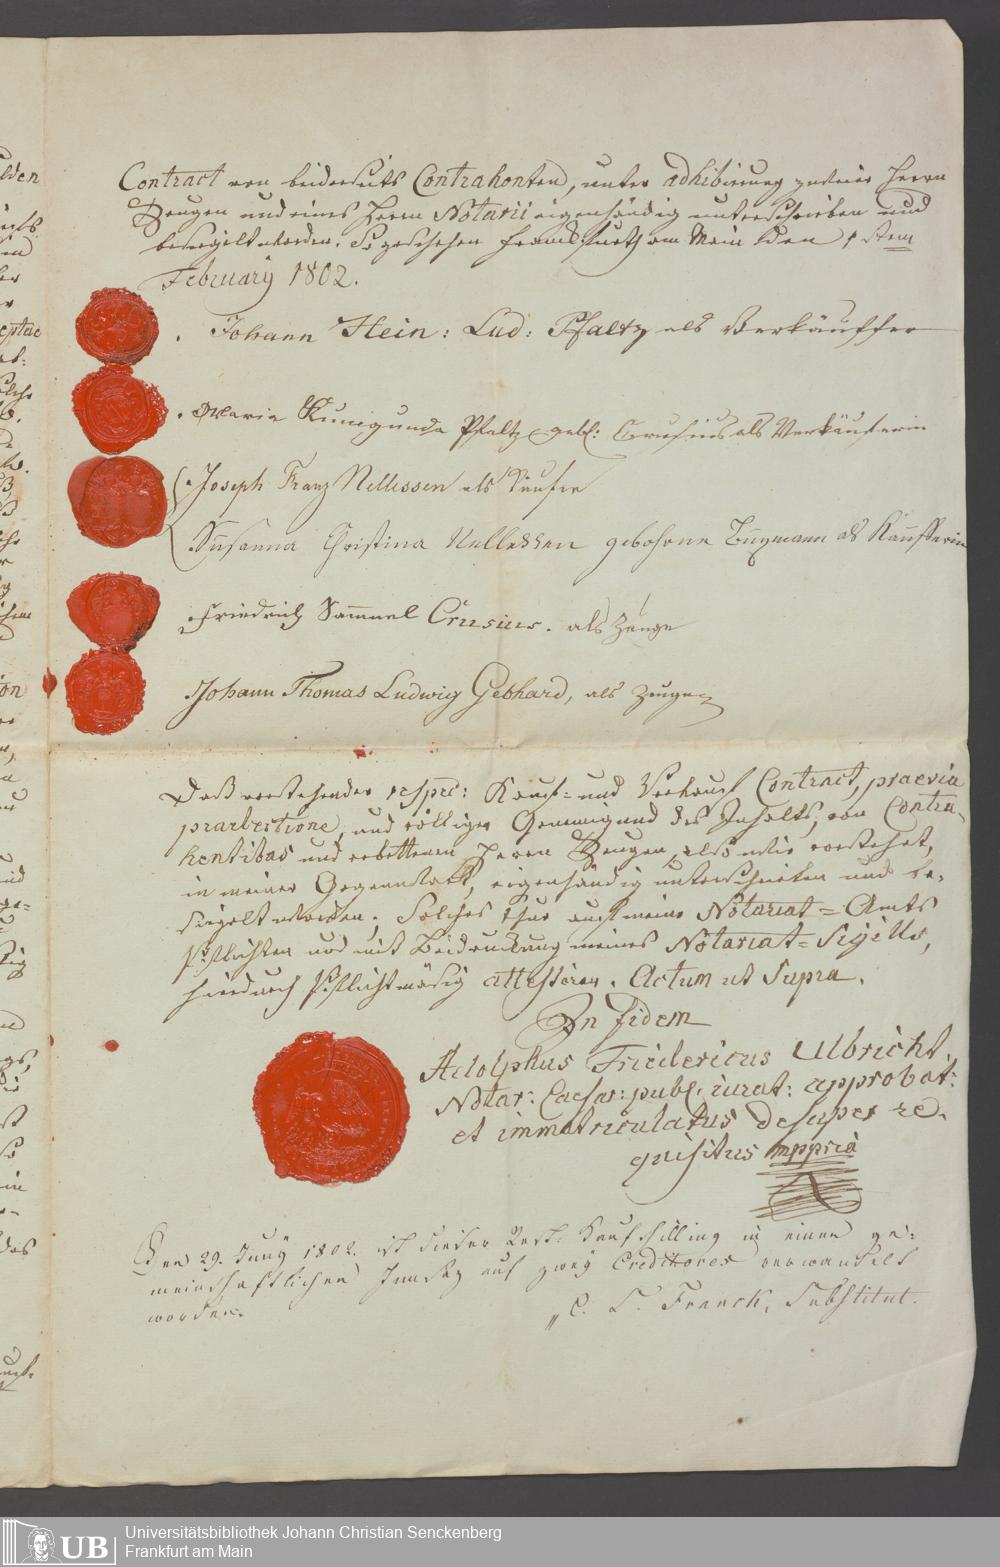 Contract von beiderseits Contrahenten, unter adhibirung zweier Herrn
Zeugen und eines Herrn Notarii eigenhändig unterschrieben und
besiegelt worden. So geschehen Frankfurth am Main den 1stem
February 1802.
Johann Hein: Lud: Pfaltz als Verkäuffer
Maria Kunigunda Pfaltz geb: Crusius als Verkäuferin
Joseph Franz Nellessen als Käufer
Susanna Christina Nellessen gebohrne Bugmann als Käufferin
Friedrich Sammuel Crusius. als Zeuge
Johann Thomas Ludwig Gebhard, als Zeugen
Daß vorstehender respec: Kauf= und Verkauf Contract, praevia
praelectione, und völliger Genemigung des Inhalts, von Contra-
hentibus und erbettenen Herrn Zeugen, also wie vorstehet,
in meiner Gegenwart, eigenhändig unterschrieben und be-
siegelt worden. Solches thue auf meine Notariat=Amts
Pflichten und mit Beidruckung meines Notariat=Sigills,
hierdurch pflichtmäsig attestiren. Actum ut Supra.
In fidem
Adolphus Fridericus Ulbricht,
Notar: Caesar: publ: iurat: approbat:
et immatriculatus desuper re-
quisitus mppria
Den 29. Juny 1802. ist dieser Rest Kaufschilling in einen ge-
meinschaftlichen Innsatz auf zwey Creditores verwandelt
worden.
C. L. Franck, Substitut.
Universitätsbibliothek Johann Christian Senckenberg
Frankfurt am Main
UB